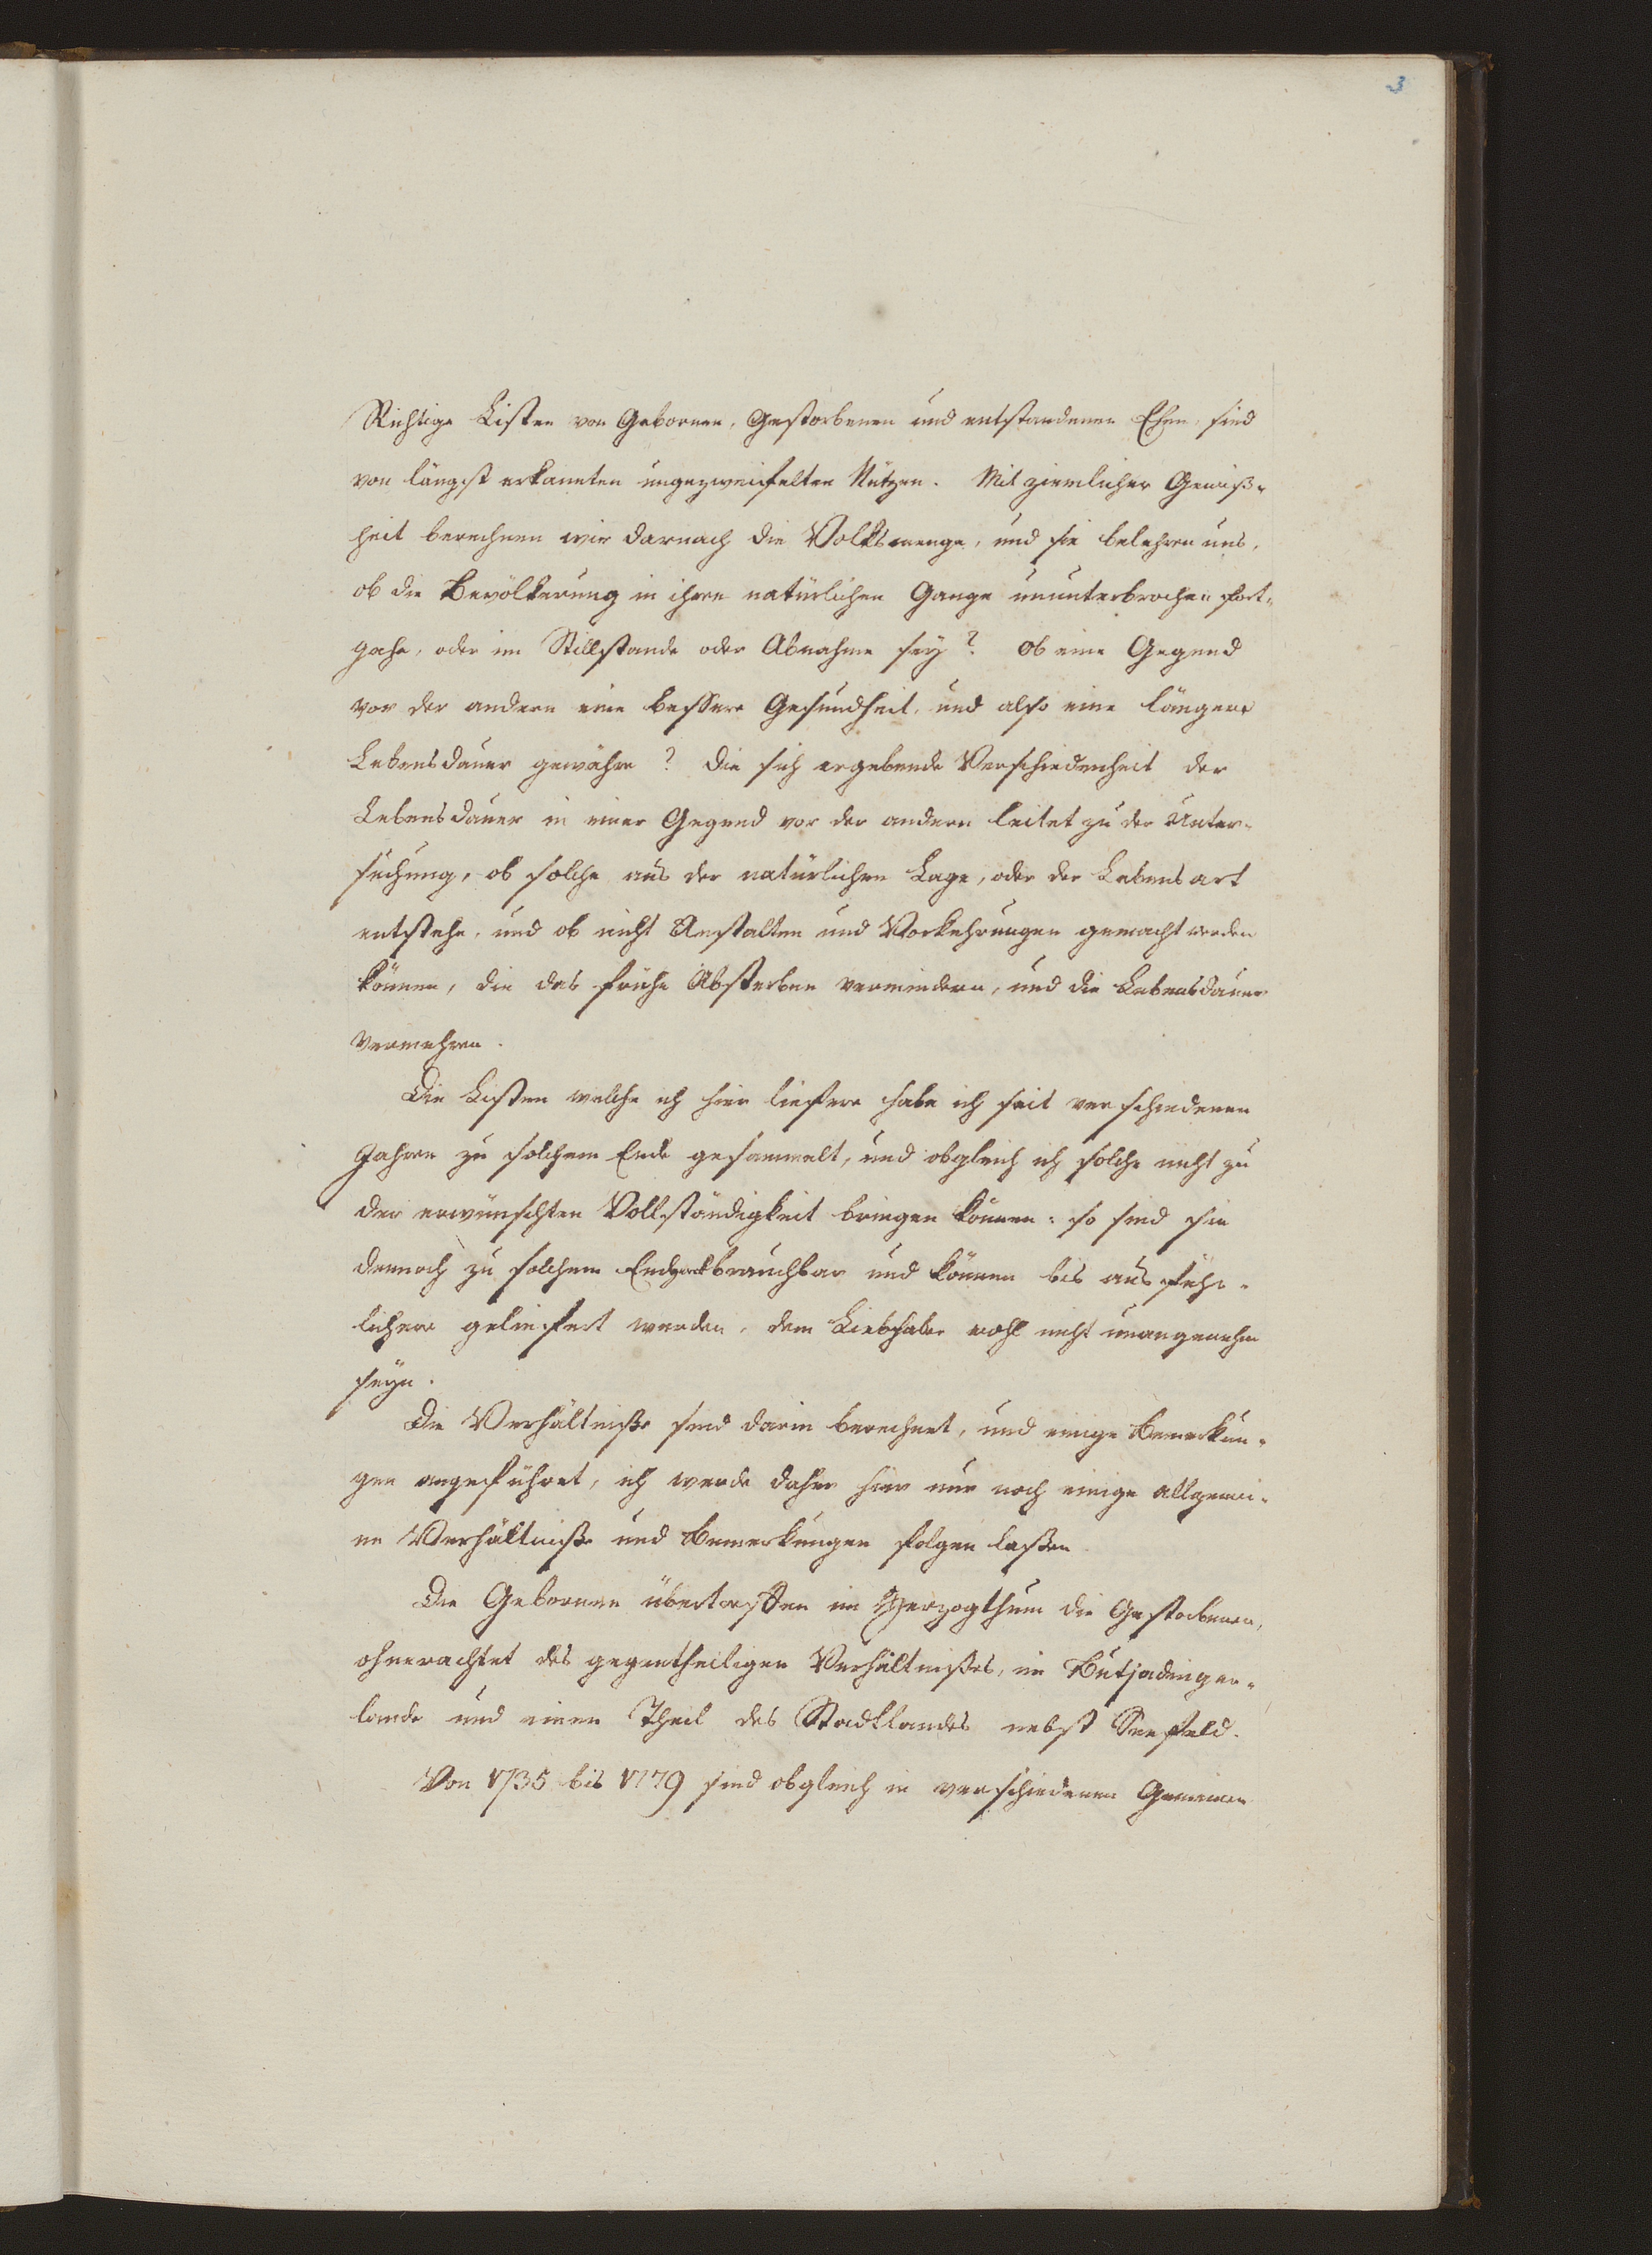 3
Richtige Listen von Gebornen, Gestorbenen und entstandenen Ehen, sind
von längst erkannten ungezweifelten Nutzen. Mit ziemlicher Gewiß-
heit berechnen wir darnach die Volksmenge, und sie belehren uns,
ob die Bevölkerung in ihren natürlichen Gange ununterbrochen fort-
gehe, oder im Stillstande oder Abnahme sey? Ob eine Gegend
vor der andern eine bessere Gesundheit, und also eine längere
Lebensdauer gewähre? Die sich ergebende Verschiedenheit der
Lebensdauer in einer Gegend vor der andern leitet zu der Unter-
suchung, ob solche aus der natürlichen Lage, oder der Lebensart
entstehe, und ob nicht Anstalten und Vorkehrungen gemacht werden
können, die das frühe Absterben vermindern, und die Lebensdauer
vermehren.
Die Listen welche ich hier liefere habe ich seit verschiedenen
Jahren zu solchem Ende gesammelt, und obgleich ich solche nicht zu
der erwünschten Vollständigkeit bringen können: so sind sie
dennoch zu solchem Endzweck brauchbar und können bis ausführ-
lichere geliefert werden, dem Liebhaber wohl nicht unangenehm
seyn.
Die Verhältniße sind darin berechnet, und einige Bemerkun-
gen angeführet, ich werde daher hier nur noch einige allgemei-
ne Verhältniße und Bemerkungen folgen laßen.
Die Gebornen übertreffen im Herzogthum die Gestorbenen,
ohnerachtet des gegentheiligen Verhältnißes, im Butjadinger-
lande und einen Theil des Stadtlandes nebst Seefeld.
Von 1735 bis 1779 sind obgleich in verschiedenen Gemeinen